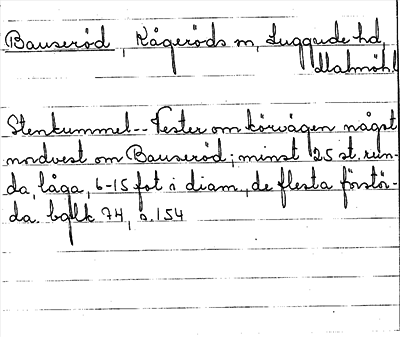 Bauseröd, Kågeröds sn, Luggude hd,
Malmöhl
Stenkummel-- Vester om körvägen något
nordvest om Bauseröd; minst 25 st. run-
da, låga, 6-15 fot i diam., de flesta förstör-
da. bglk 74, s. 154